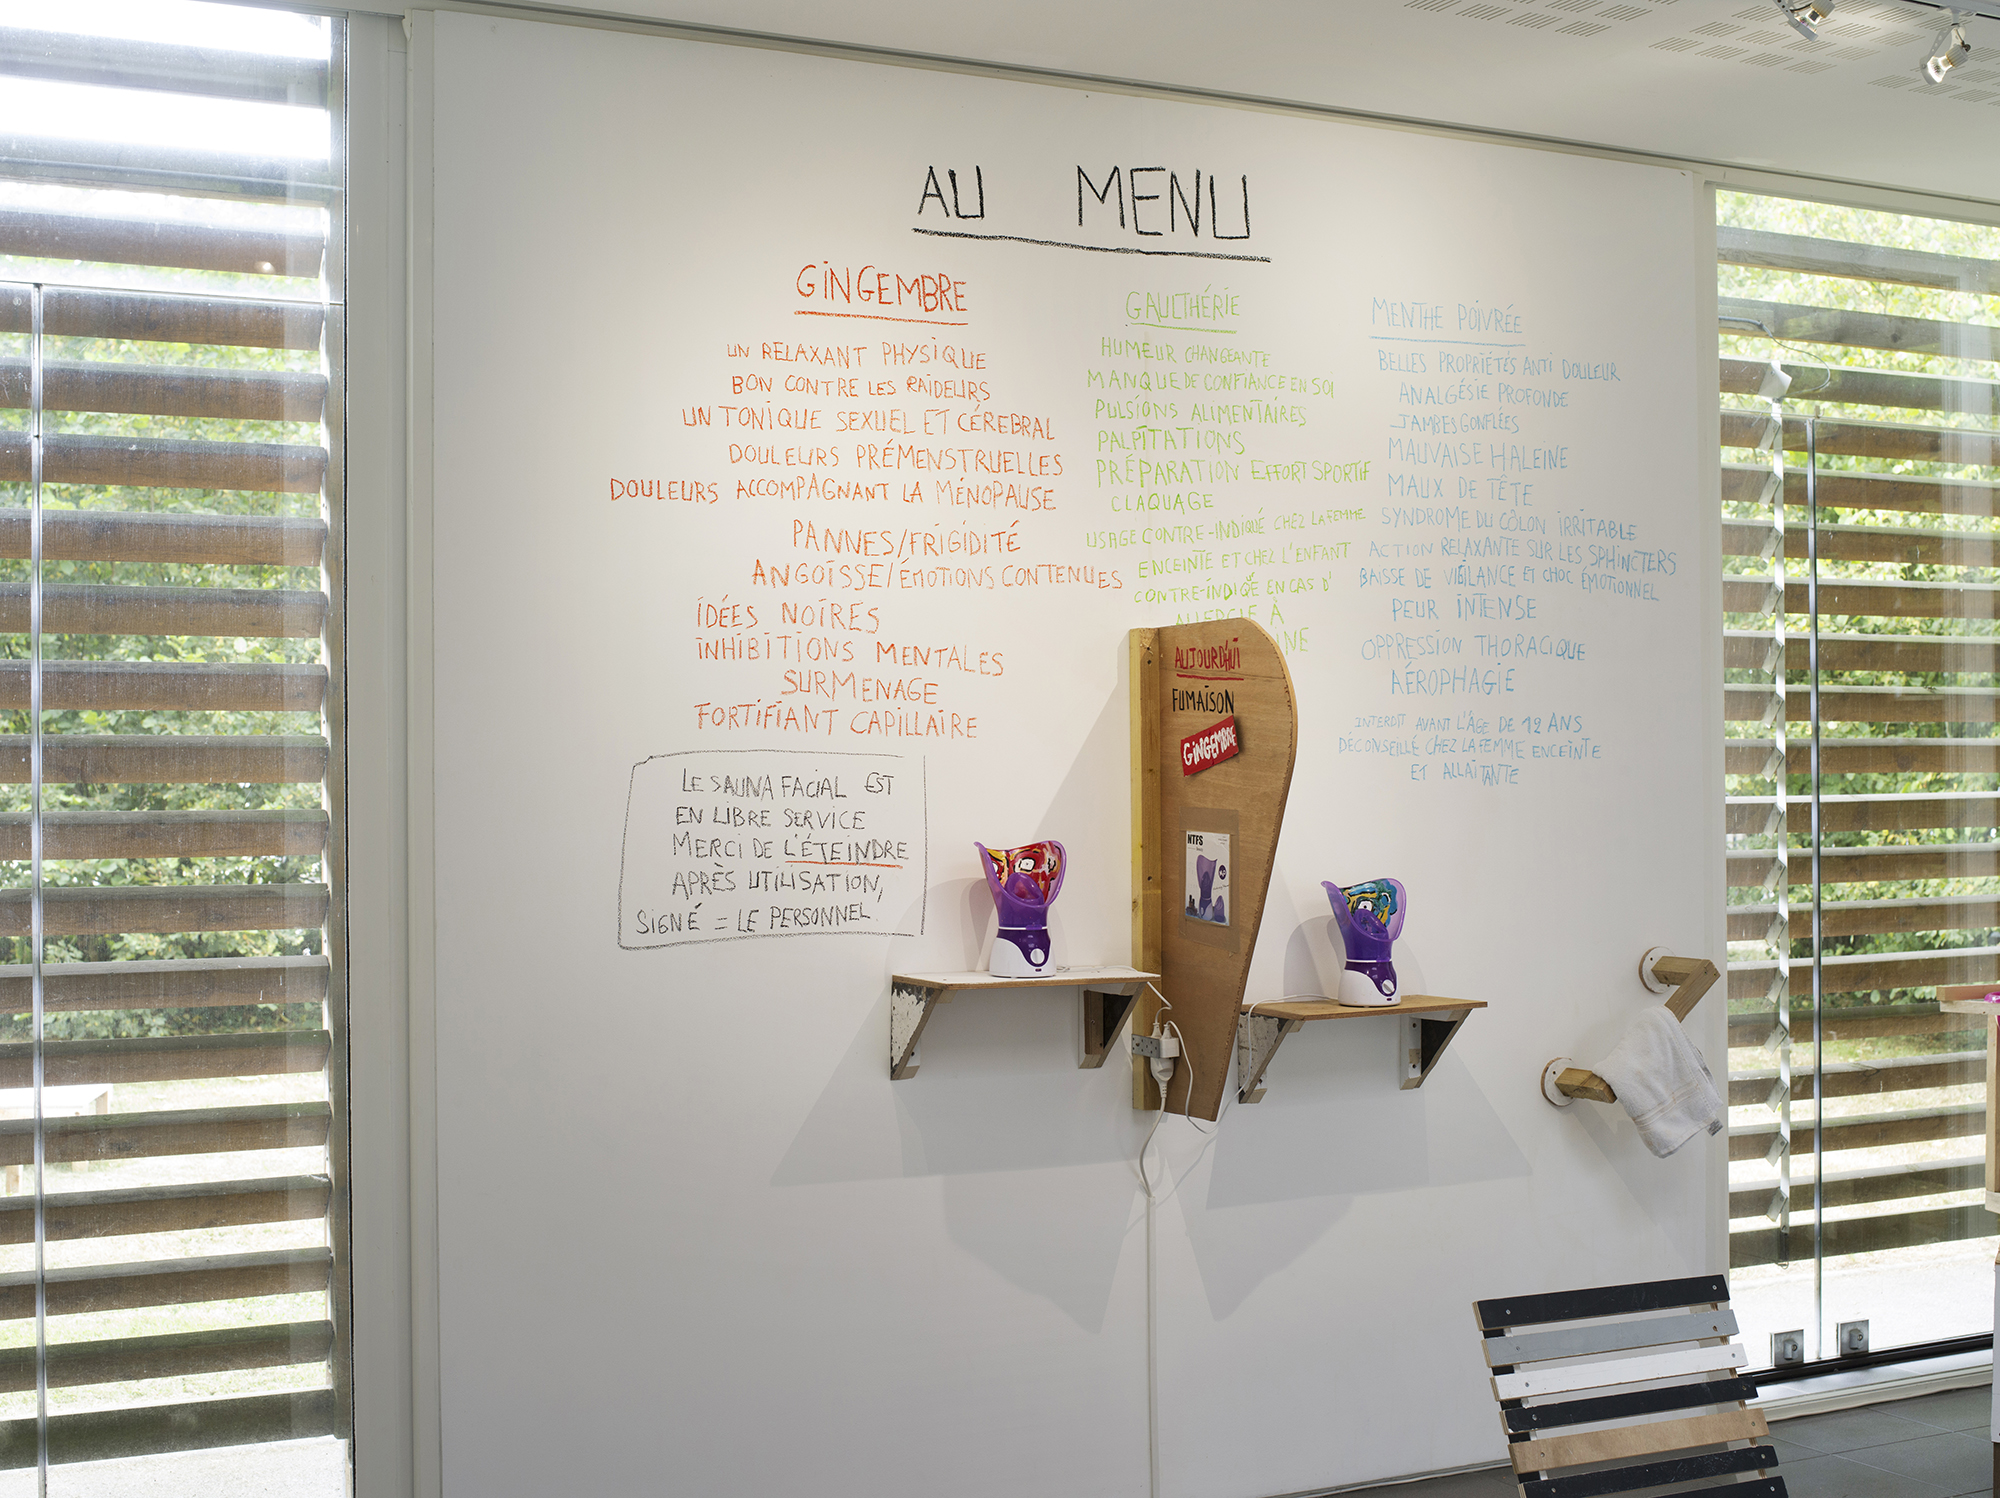 AU MENU
GINGEMBRE
UN RELAXANT PHYSIQUE
BON CONTRE LES RAIDEURS
UN TONIQUE SEXUEL ET CÉRÉBRAL
DOULEURS PRÉMENSTRUELLES
DOULEURS ACCOMPAGNANT LA MÉNOPAUSE
PANNES/FRIGIDITÉ
ANGOISSE/ÉMOTIONS CONTENUES
IDÉES NOIRES
INHIBITIONS MENTALES
SURMENAGE
FORTIFIANT CAPILLAIRE
GAULTHÉRIE
HUMEUR CHANGEANTE
MANQUE DE CONFIANCE EN SOI
PULSIONS ALIMENTAIRES
PALPITATIONS
PRÉPARATION EFFORT SPORTIF
CLAQUAGE
USAGE CONTRE-INDIQUÉ CHEZ LA FEMME
ENCEINTE ET CHEZ L'ENFANT
CONTRE-INDIQÉ EN CAS D'
ALLERGIE À
MENTHE POIVRÉE
BELLES PROPRIÉTÉS ANTI DOULEUR
ANALGÉSIE PROFONDE
JAMBES GONFLÉES
MAUVAISE HALEINE
MAUX DE TÊTE
SYNDROME DU CÔLON IRRITABLE
ACTION RELAXANTE SUR LES SPHINCTERS
BAISSE DE VIGILANCE ET CHOC ÉMOTIONNEL
PEUR INTENSE
OPPRESSION THORACIQUE
AÉROPHAGIE
INTERDIT AVANT L'ÂGE DE 12 ANS
DÉCONSEILLÉ CHEZ LA FEMME ENCEINTE
ET ALLAITANTE
LE SAUNA FACIAL EST
EN LIBRE SERVICE
MERCI DE L'ÉTEINDRE
APRÈS UTILISATION,
SIGNÉ = LE PERSONNEL.
AUJOURD'HUI
FUMAISON
GINGEMBRE
NTFS